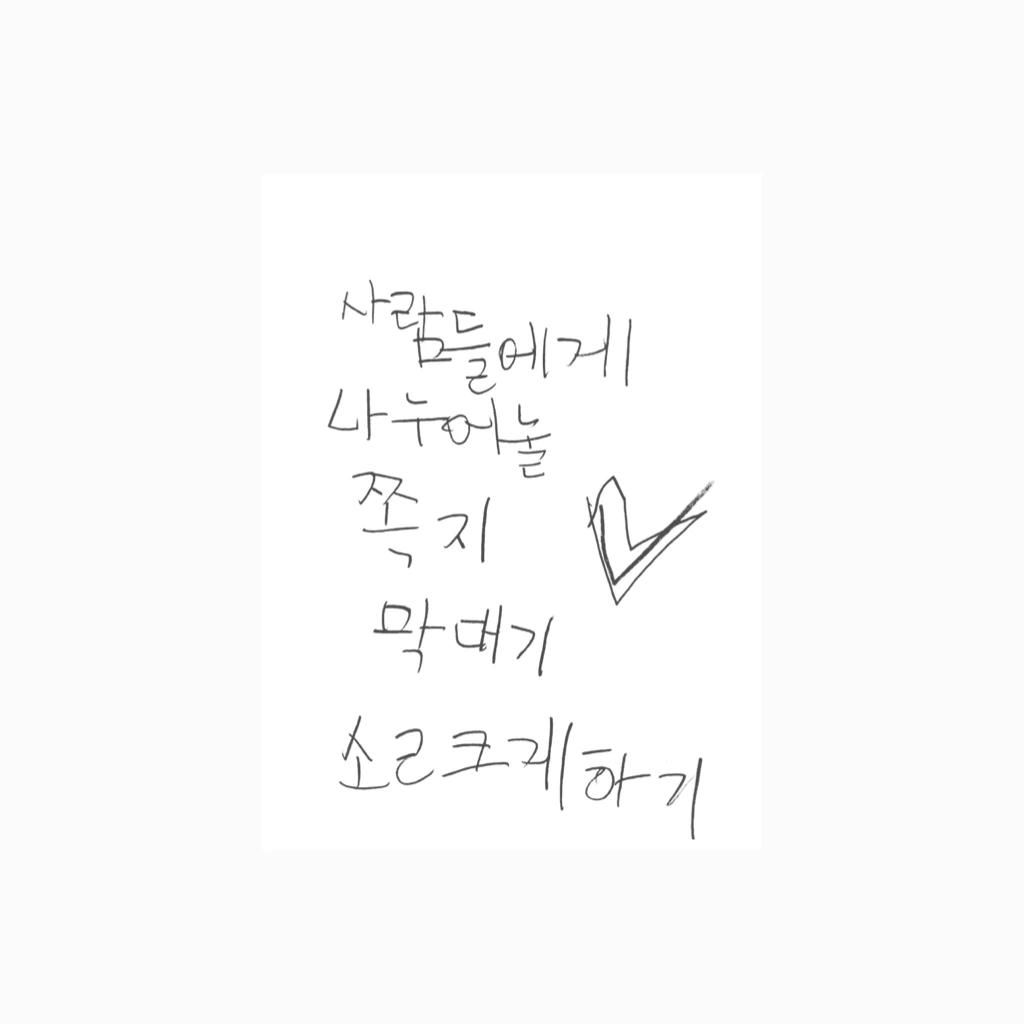 사람들에게
나누어놀
쪽지
막대기
소르크게하기